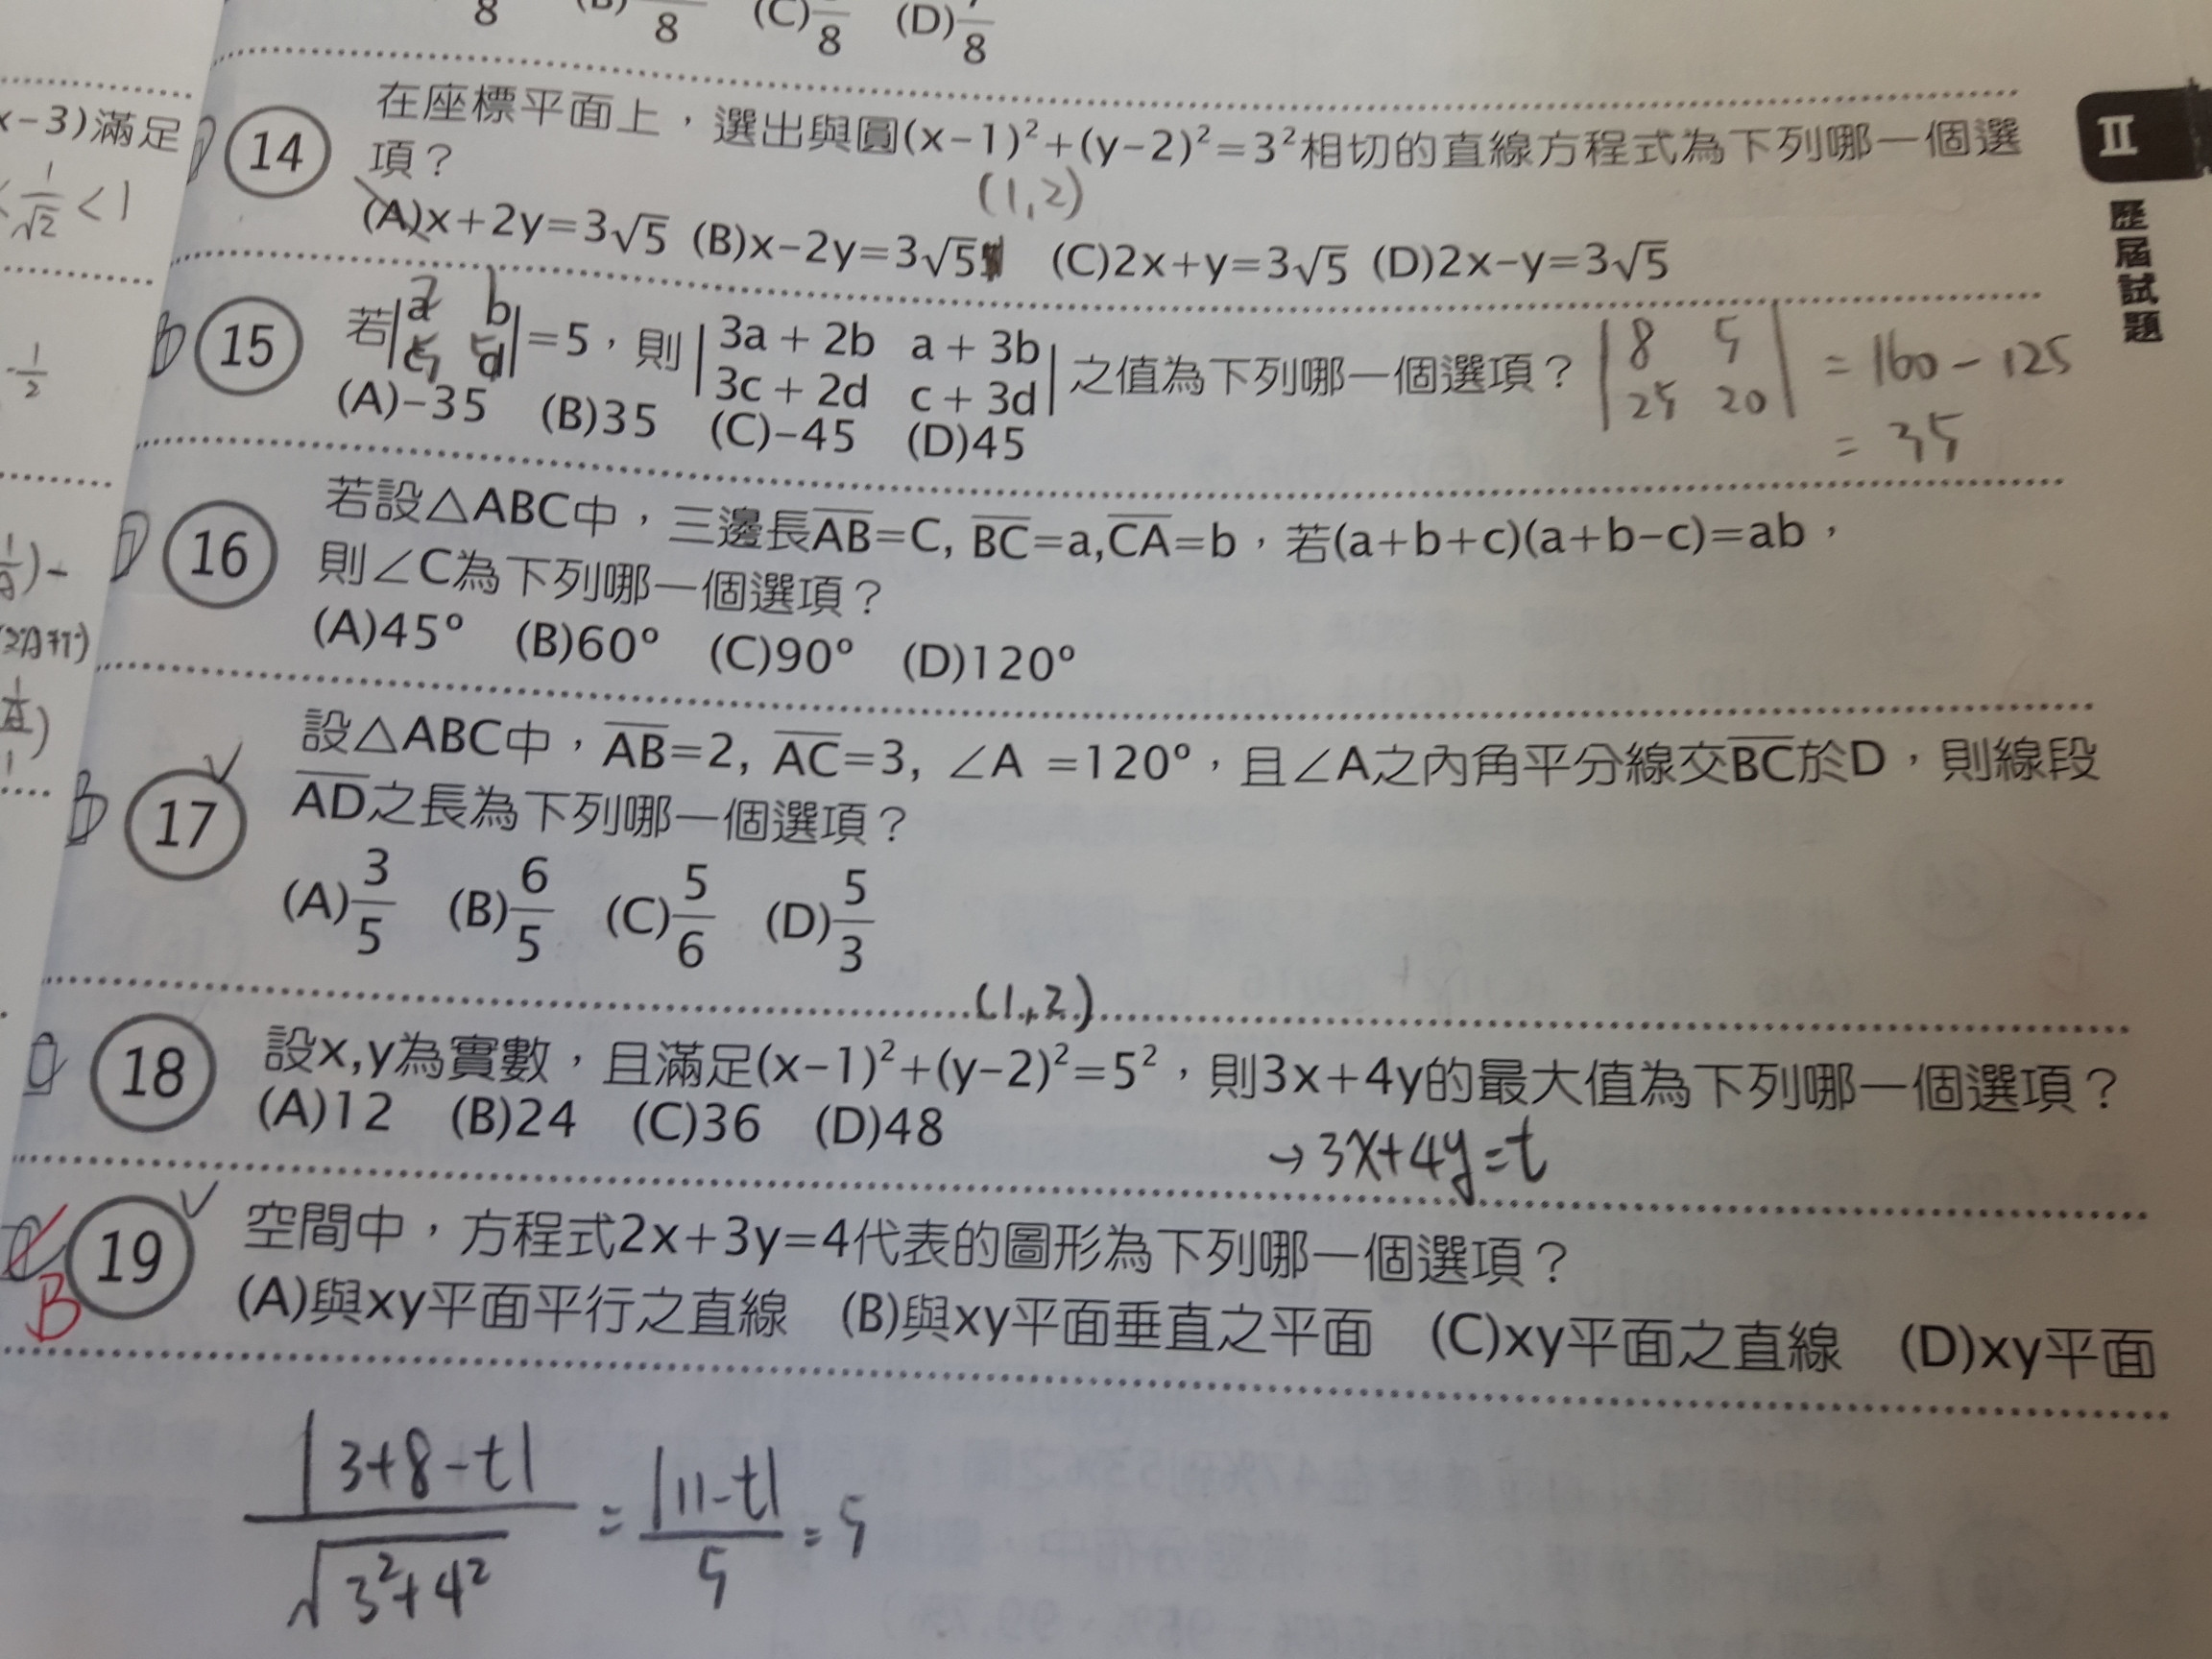 8 (B) 8 (C) 8 (D) 7/8
x-3)滿足
1/√2 < 1
14 在座標平面上，選出與圓(x-1)²+(y-2)²=3²相切的直線方程式為下列哪一個選
項？
(1,2)
(A)x+2y=3√5 (B)x-2y=3√5 (C)2x+y=3√5 (D)2x-y=3√5
II
歷屆試題
B 15 若|a b; c d|=5，則|3a+2b a+3b; 3c+2d c+3d|之值為下列哪一個選項？ |8 5; 25 20| = 160-125
= 35
(A)-35 (B)35 (C)-45 (D)45
D 16 若設△ABC中，三邊長AB=C, BC=a,CA=b，若(a+b+c)(a+b-c)=ab，
則∠C為下列哪一個選項？
(A)45° (B)60° (C)90° (D)120°
B 17 設△ABC中，AB=2, AC=3, ∠A =120°，且∠A之內角平分線交BC於D，則線段
AD之長為下列哪一個選項？
(A)3/5 (B)6/5 (C)5/6 (D)5/3
(1,2)
18 設x,y為實數，且滿足(x-1)²+(y-2)²=5²，則3x+4y的最大值為下列哪一個選項？
(A)12 (B)24 (C)36 (D)48
→3x+4y=t
B 19 空間中，方程式2x+3y=4代表的圖形為下列哪一個選項？
(A)與xy平面平行之直線 (B)與xy平面垂直之平面 (C)xy平面之直線 (D)xy平面
|3+8-t|/√3²+4² = |11-t|/5 = 5